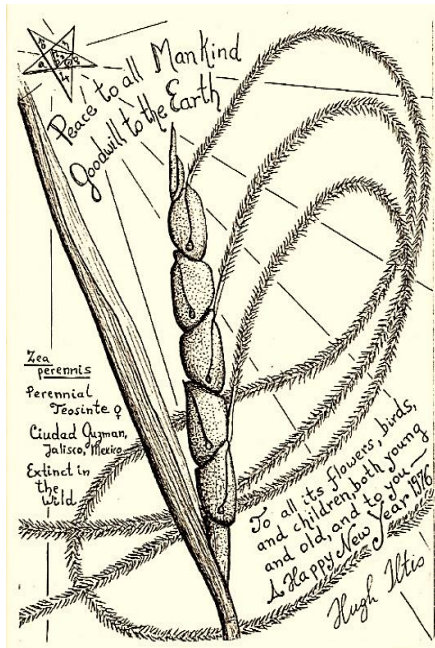 Peace to all Mankind
Goodwill to the Earth
Zea
perennis
Perennial
Teosinte ♀
Ciudad Guzman,
Jalisco, Mexico
Extinct in
the
Wild.
To all its flowers, birds,
and children, both young
and old, and to you —
A Happy New Year 1976
Hugh Iltis